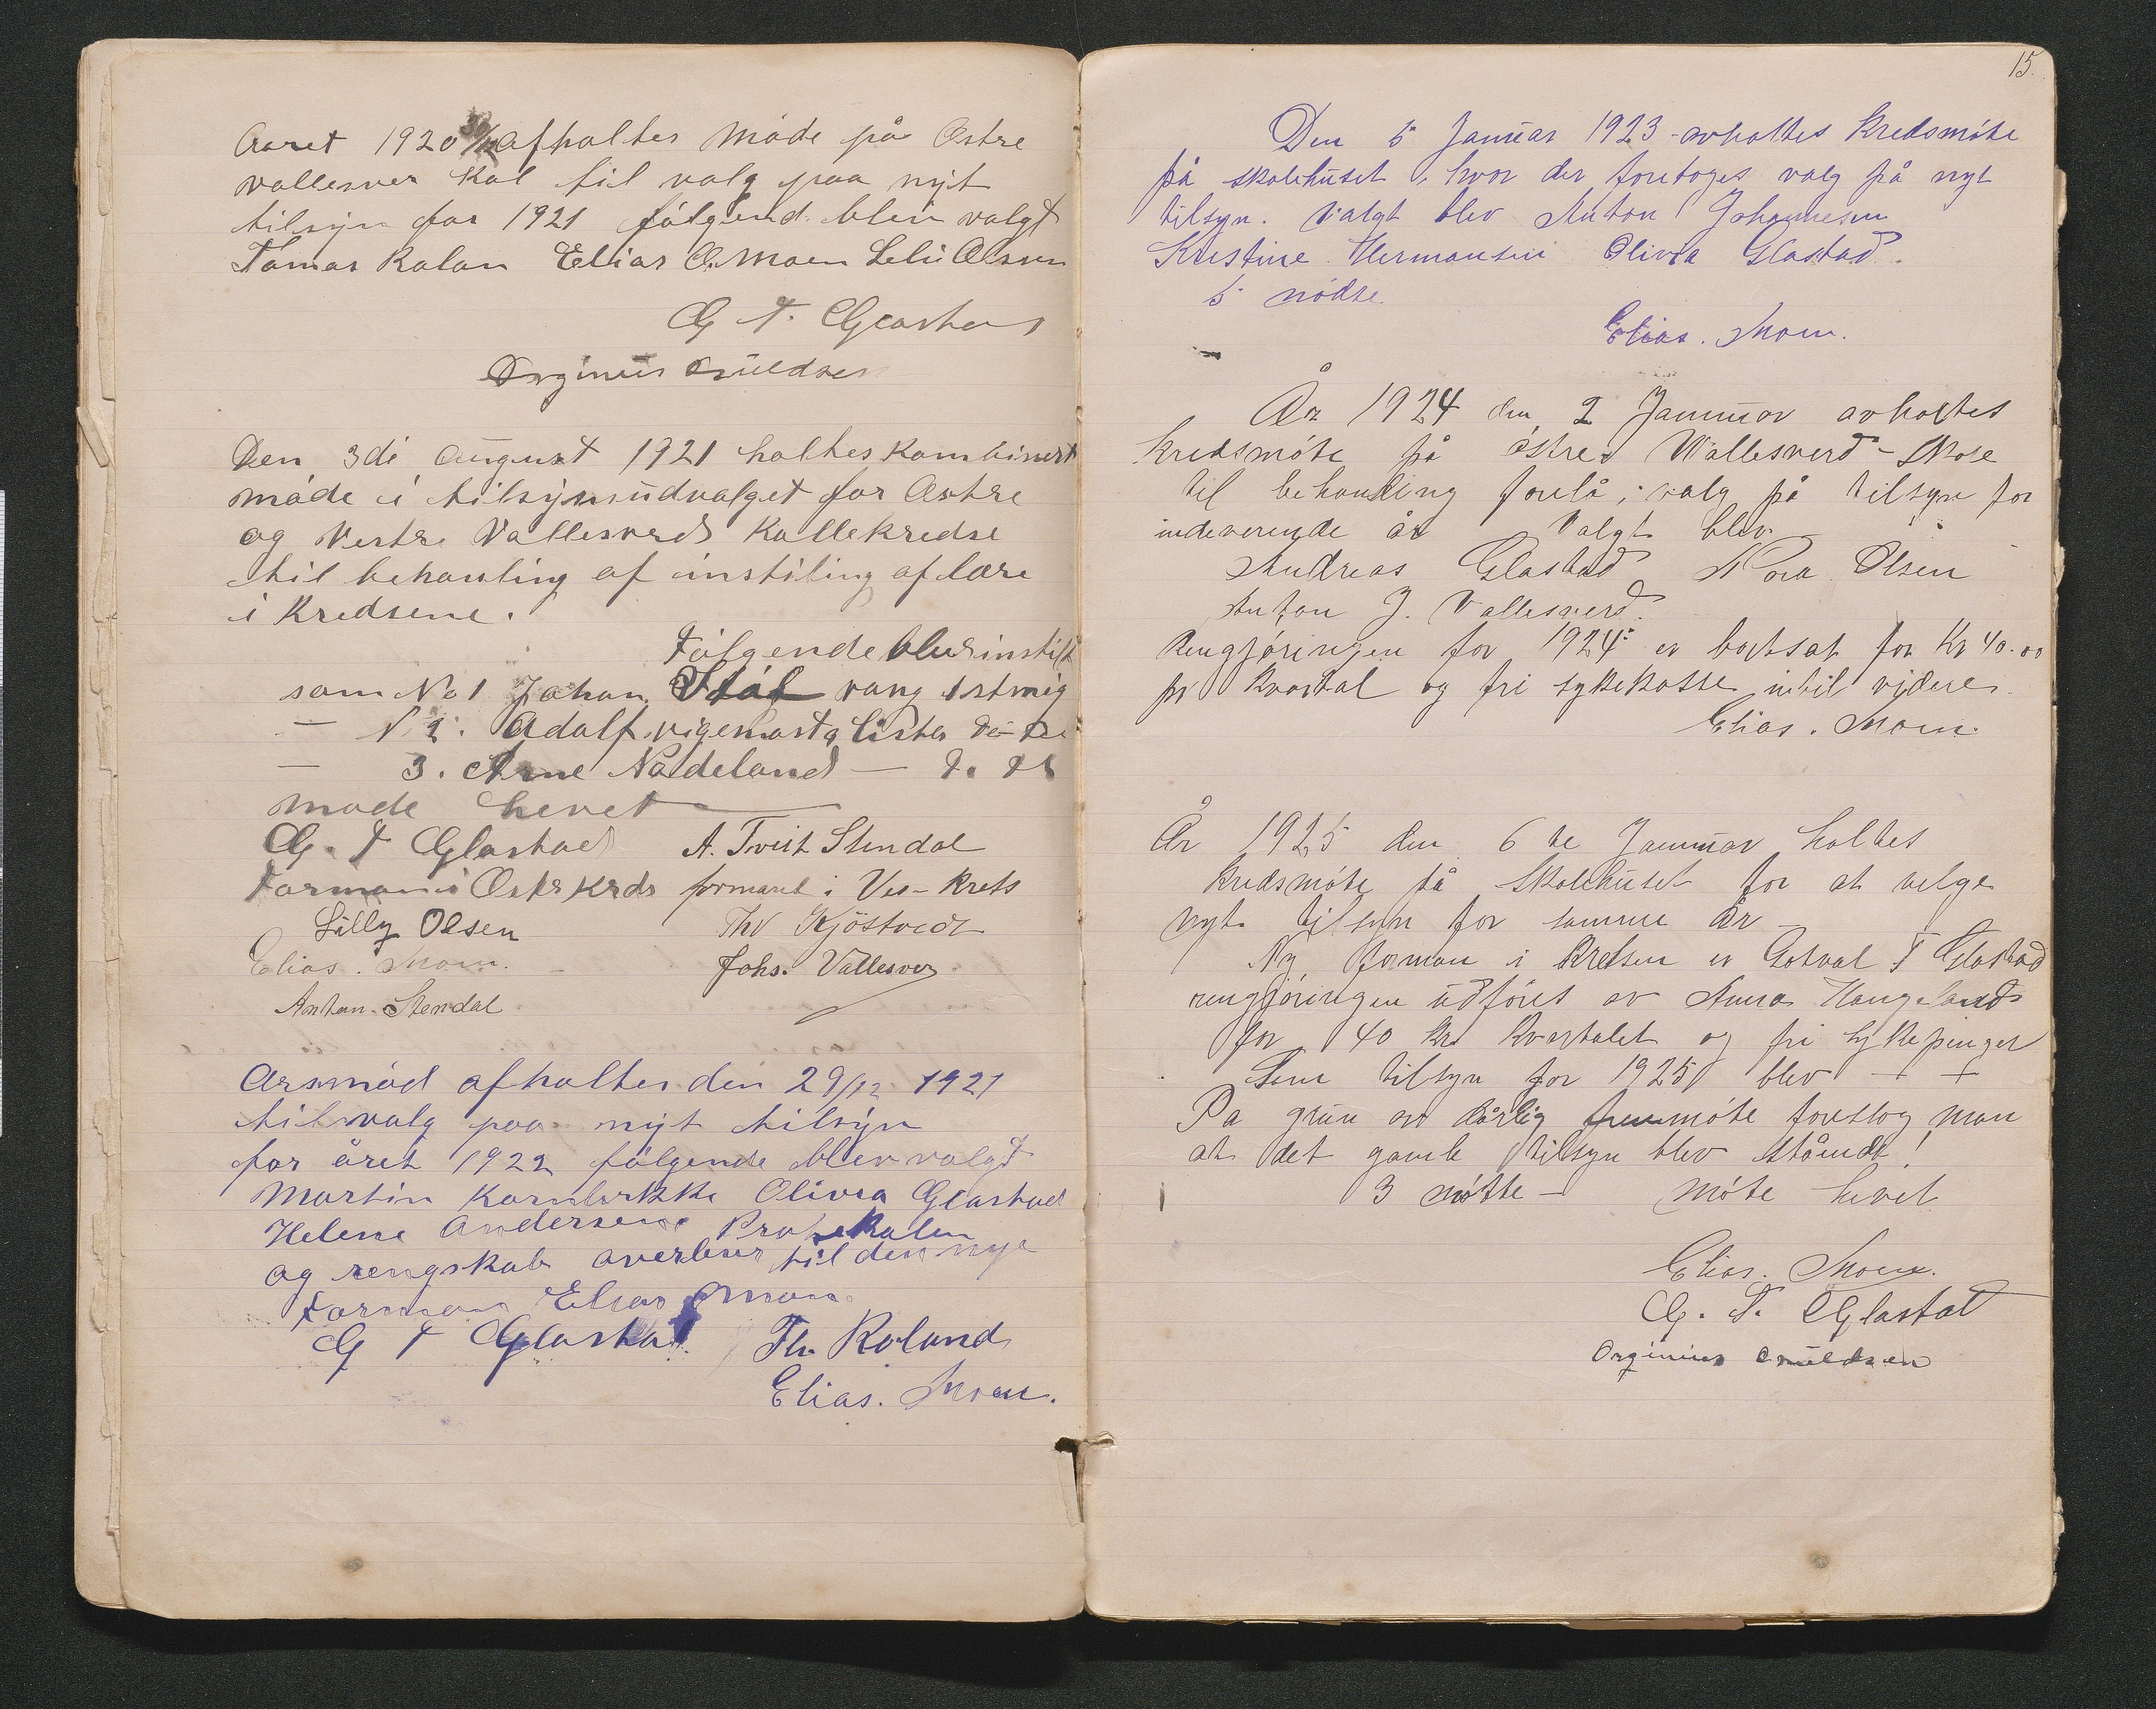 Aaret 1920 30/12 afholtes møde på Østre
vallesver skol til valg paa nyt
tilsyn for 1921 følgend blev valgt
Tomas Rolan Elias O. Moen Lili Olsen
G T. Glastad
Orginius Omuldsen
Den 3di august 1921 holtes kombinert
møde i tilsynsudvalget for Østre
og Vestre Vallesverd skollekredse
til behanling af instiling af lære
i Kredsene.
Følgende blev instilt
som No 1 Johan
N 2. Adolf
3. Arne Nødeland
møde hevet
G. T Glastad A. Tveit Stendal
Forman i Østr krds formand i Ves-krets
Lilly Olsen Thv Kjöstvedt
Elias. Moen. Johs. Vallesver
Anton Stendal
Arsmöd afholtes den 29/12 1921
til valg paa nyt tilsyn
for året 1922 følgende blev valgt
Martin Kornbrekke Olivia Glastad
Helene Andersen Protokolen
og rengskab overlever til den nye
Forman Elias Moen
G T Glastad Th. Roland
Elias. Moen.
15.
Den 5 Januar 1923 avholtes kredsmöte
på skolehuset, hvor der foretoges valg på nyt
tilsyn. Valgt blev Anton Johannesen
Kristine Hermansen Olivia Glastad.
5 mödte
Elias. Moen.
År 1924 den 2 Januar avholtes
kredsmöte på östre Vallesverd-Skole
til behandling forelå; valg på tilsyn for
indeverende år Valgt blev
Andreas Glastad Nora Olsen
Anton J. Vallesverd.
Rengjöringen for 1924 er bortsat for Kr 40.00
pr kvartal og fri sykekasse intil vidre.
Elias. Moen.
År 1925 den 6 te Januar holtes
kredsmöte på Skolehuset for at velge
nyt tilsyn for samme år
Ny forman i kretsen er Gotval T Glastad
rengjöringen udföres av Anna Haugeland
for 40 kr kvartalet og fri sykepenger
Som tilsyn for 1925 blev - +
På grun av dårlig fremmöte foreslog man
at det gamle tilsyn blev stående!
3 mötte - möte hevet
Elias. Moen.
G. T. Glastad
Orginius Omuldsen